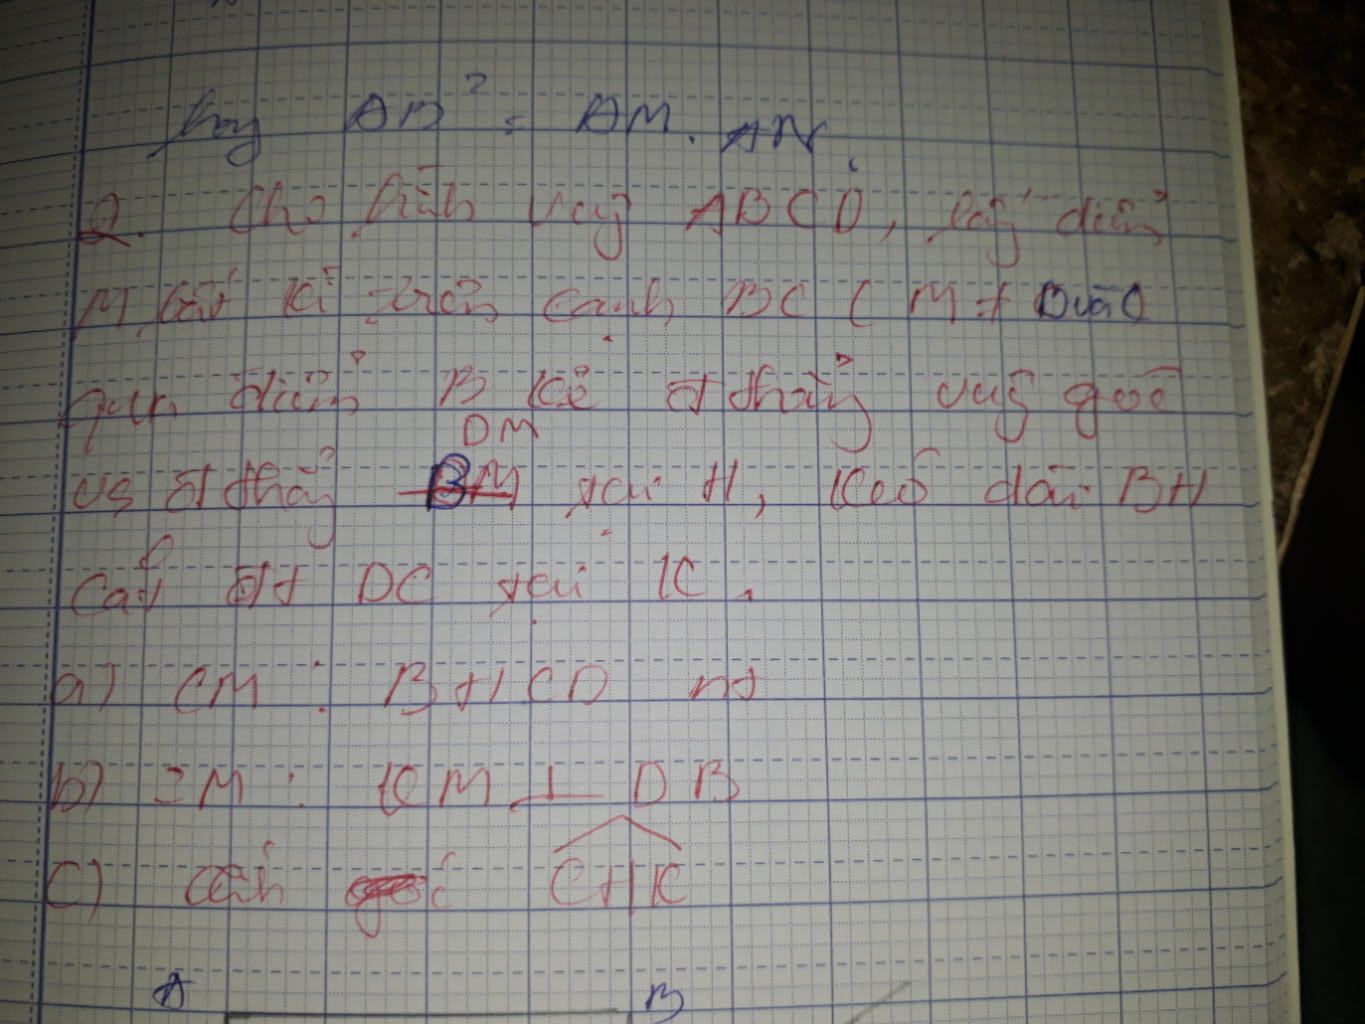 hay AB² = AM. AN.
2. Cho hình vug ABCD, lấy điểm
M bất kì trên cạnh BC ( M ≠ B và C
qua điểm B kẻ đt thẳg vug góc
vs đt thẳg DM tại H, Kéo dài BH
Cắt đt DC tại K.
a) CM : BHCD nt
b) CM : KM ⊥ DB
c) tính góc CHK
A B